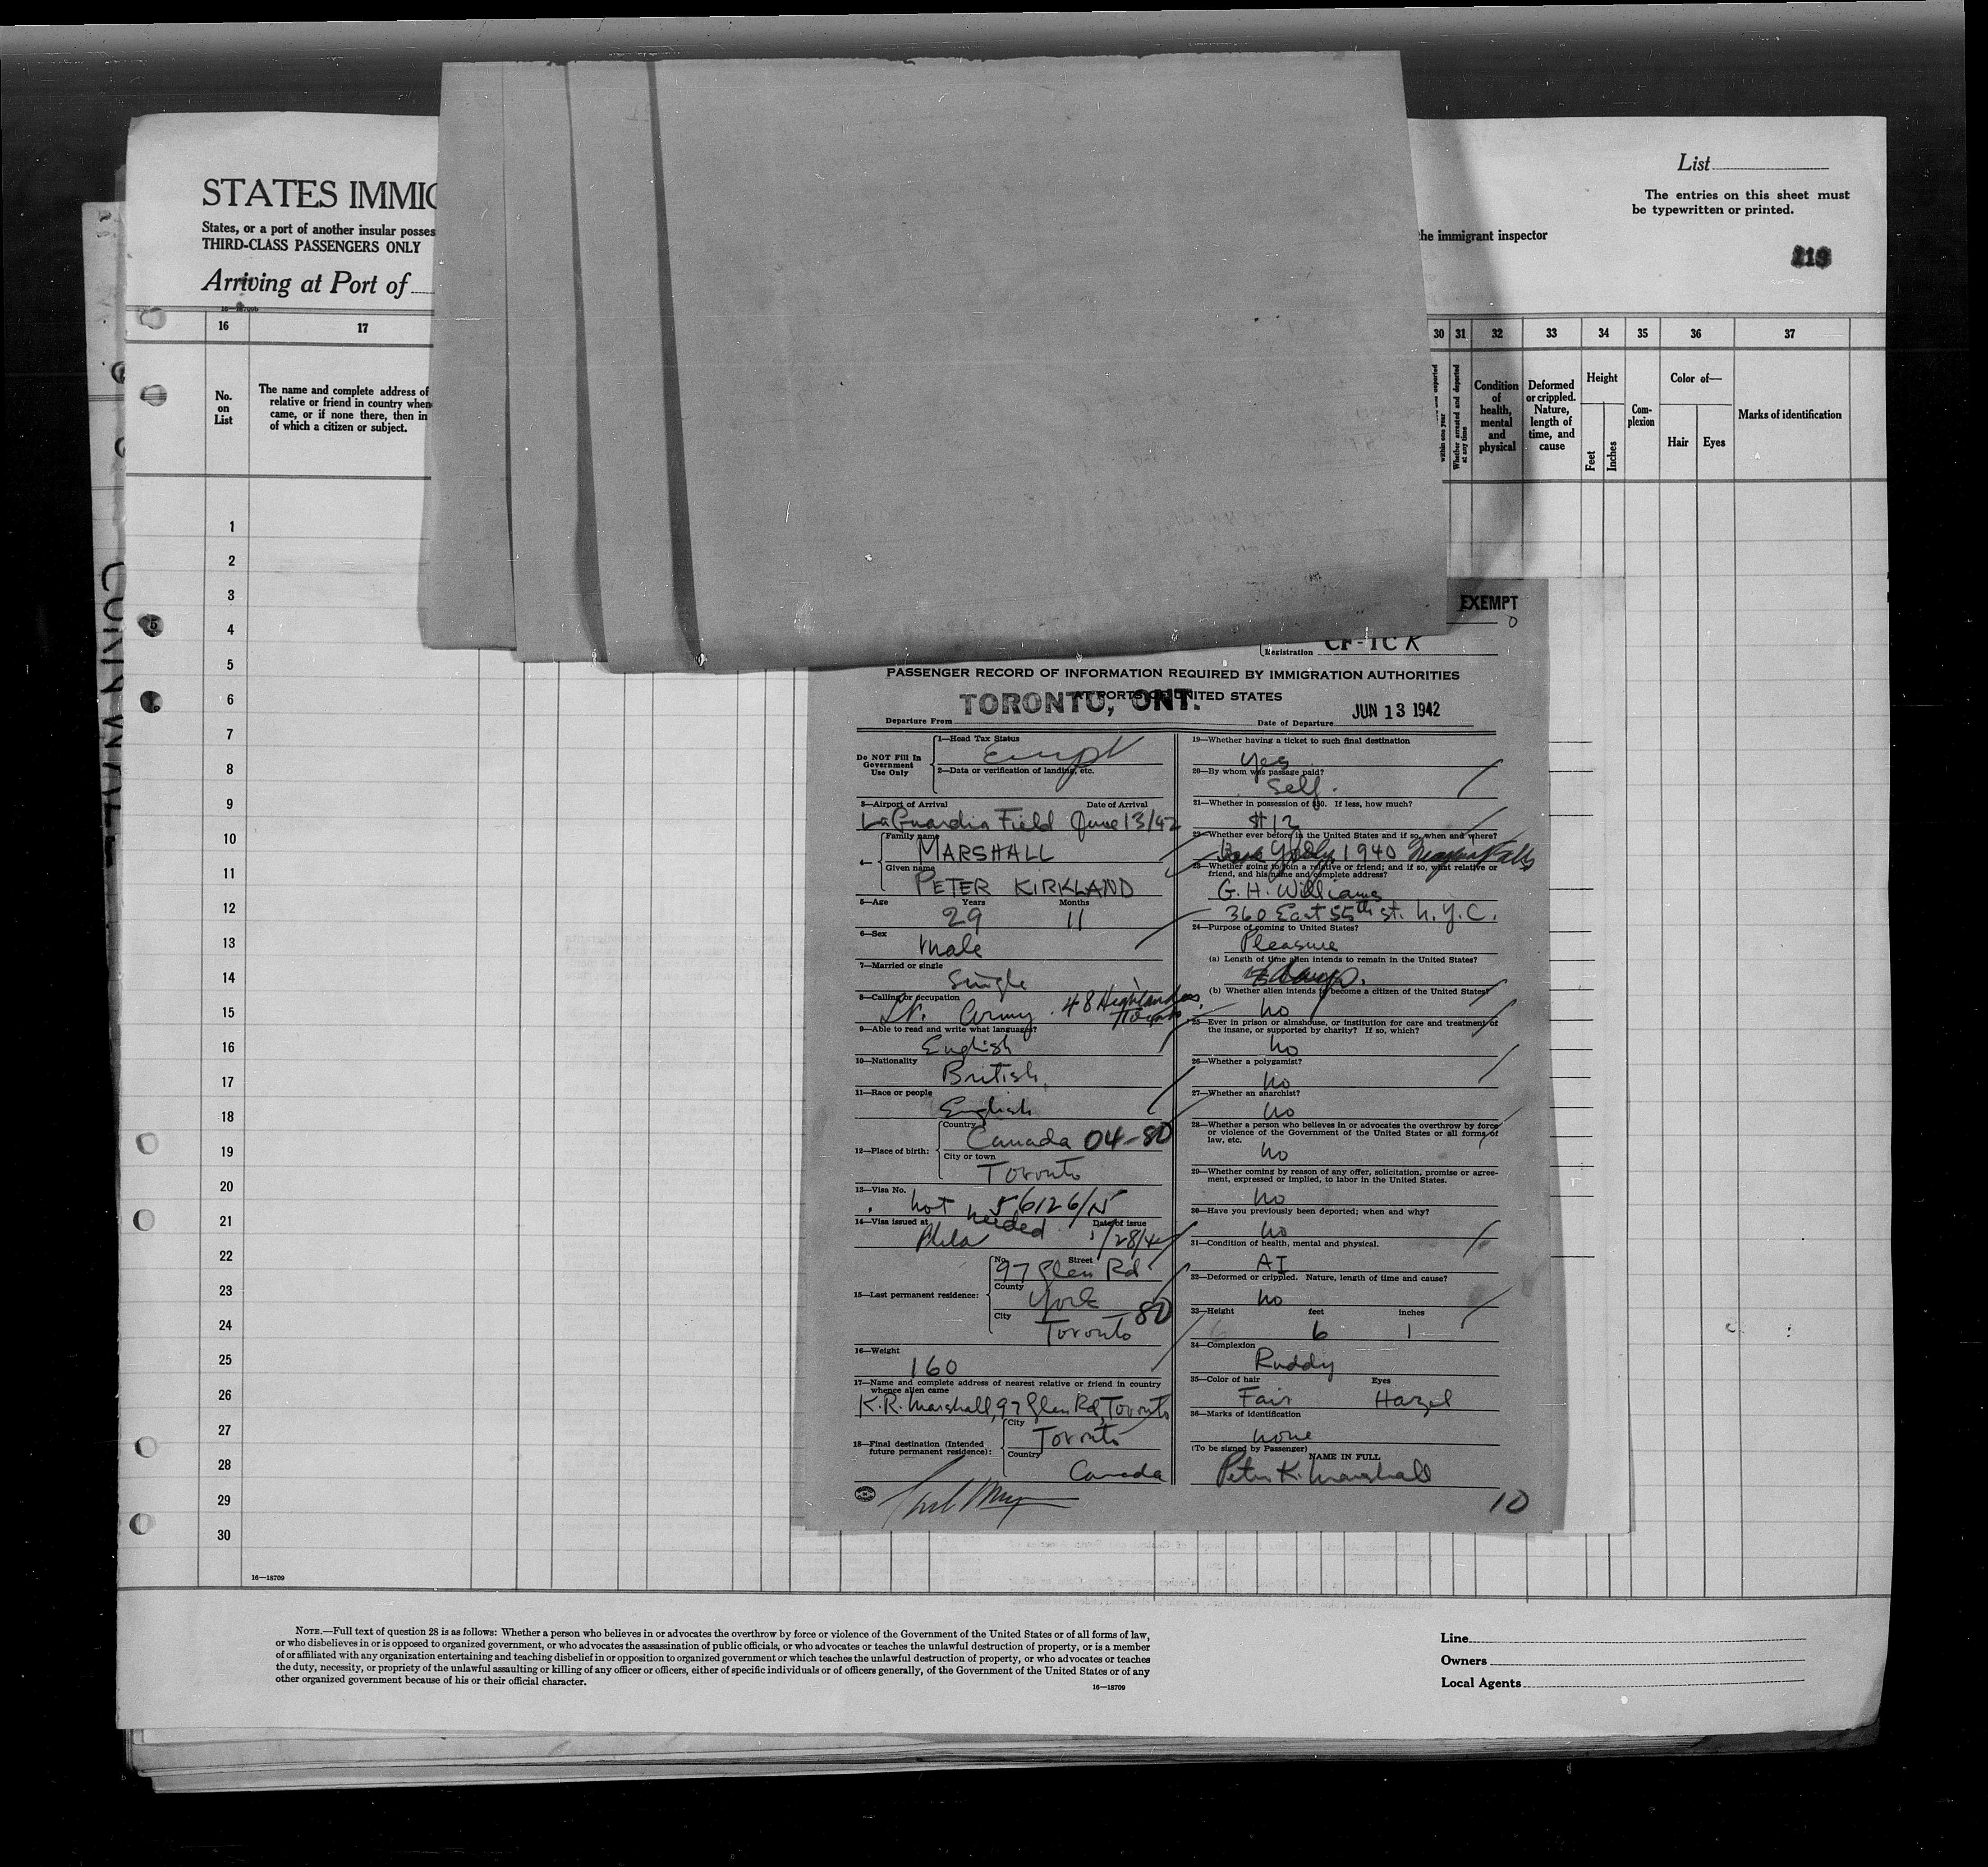 STATES IMMIG
States, or a port of another insular posses
THIRD-CLASS PASSENGERS ONLY
Arriving at Port of
List
The entries on this sheet must
be typewritten or printed.
the immigrant inspector
16 17
No.
on
List
The name and complete address of
relative or friend in country when
came, or if none there, then in
of which a citizen or subject.
30 31 32 33 34 35 36 37
Whether arrested and deported
at any time
Condition
of
health,
mental
and
physical
Deformed
or crippled.
Nature,
length of
time, and
cause
Height
Feet
Inches
Com-
plexion
Color of—
Hair Eyes
Marks of identification
1
2
3
4
5
6
7
8
9
10
11
12
13
14
15
16
17
18
19
20
21
22
23
24
25
26
27
28
29
30
16—18709
EXEMPT
Registration CF-TCK
PASSENGER RECORD OF INFORMATION REQUIRED BY IMMIGRATION AUTHORITIES
AT PORTS OF UNITED STATES
Departure From TORONTO, ONT. Date of Departure JUN 13 1942
Do NOT Fill In
Government
Use Only
1—Head Tax Status
2—Data or verification of landing, etc.
3—Airport of Arrival Date of Arrival
LaGuardia Field June 13/42
4— Family name
MARSHALL
Given name
PETER KIRKLAND
5—Age Years Months
29 11
6—Sex
Male
7—Married or single
Single
8—Calling or occupation
Lt. Army. 48 Highlanders,
Toronto
9—Able to read and write what language?
English
10—Nationality
British.
11—Race or people
English
12—Place of birth: Country
Canada 04-80
City or town
Toronto
13—Visa No.
not needed 56126/N
14—Visa issued at Date of issue
Phila
15—Last permanent residence: No. Street
97 Glen Rd
County
York
City 80
Toronto
16—Weight
160
17—Name and complete address of nearest relative or friend in country
whence alien came
K.R. Marshall, 97 Glen Rd, Toronto
18—Final destination (Intended
future permanent residence): City
Toronto
Country
Canada
19—Whether having a ticket to such final destination
Yes
20—By whom was passage paid?
Self.
21—Whether in possession of $50. If less, how much?
$12
22—Whether ever before in the United States and if so, when and where?
July 1940 Niagara Falls
23—Whether going to join a relative or friend; and if so, what relative or
friend, and his name and complete address?
G.H. Williams
360 East 55th St. N.Y.C.
24—Purpose of coming to United States?
Pleasure
(a) Length of time alien intends to remain in the United States?
days.
(b) Whether alien intends to become a citizen of the United States?
No
25—Ever in prison or almshouse, or institution for care and treatment of
the insane, or supported by charity? If so, which?
No
26—Whether a polygamist?
No
27—Whether an anarchist?
No
28—Whether a person who believes in or advocates the overthrow by force
or violence of the Government of the United States or all forms of
law, etc.
No
29—Whether coming by reason of any offer, solicitation, promise or agree-
ment, expressed or implied, to labor in the United States.
No
30—Have you previously been deported; when and why?
No
31—Condition of health, mental and physical.
AI
32—Deformed or crippled. Nature, length of time and cause?
No
33—Height feet inches
6 1
34—Complexion
Ruddy
35—Color of hair Eyes
Fair Hazel
36—Marks of identification
none
(To be signed by Passenger) NAME IN FULL
Peter K. Marshall
10
NOTE.—Full text of question 28 is as follows: Whether a person who believes in or advocates the overthrow by force or violence of the Government of the United States or of all forms of law,
or who disbelieves in or is opposed to organized government, or who advocates the assassination of public officials, or who advocates or teaches the unlawful destruction of property, or is a member
of or affiliated with any organization entertaining and teaching disbelief in or opposition to organized government or which teaches the unlawful destruction of property, or who advocates or teaches
the duty, necessity, or propriety of the unlawful assaulting or killing of any officer or officers, either of specific individuals or of officers generally, of the Government of the United States or of any
other organized government because of his or their official character.
16—18709
Line
Owners
Local Agents